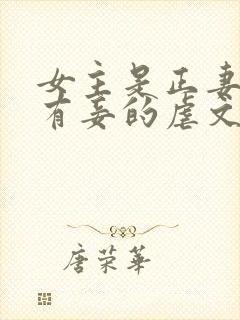 女主是正妻
有妾的虐文
唐荣华